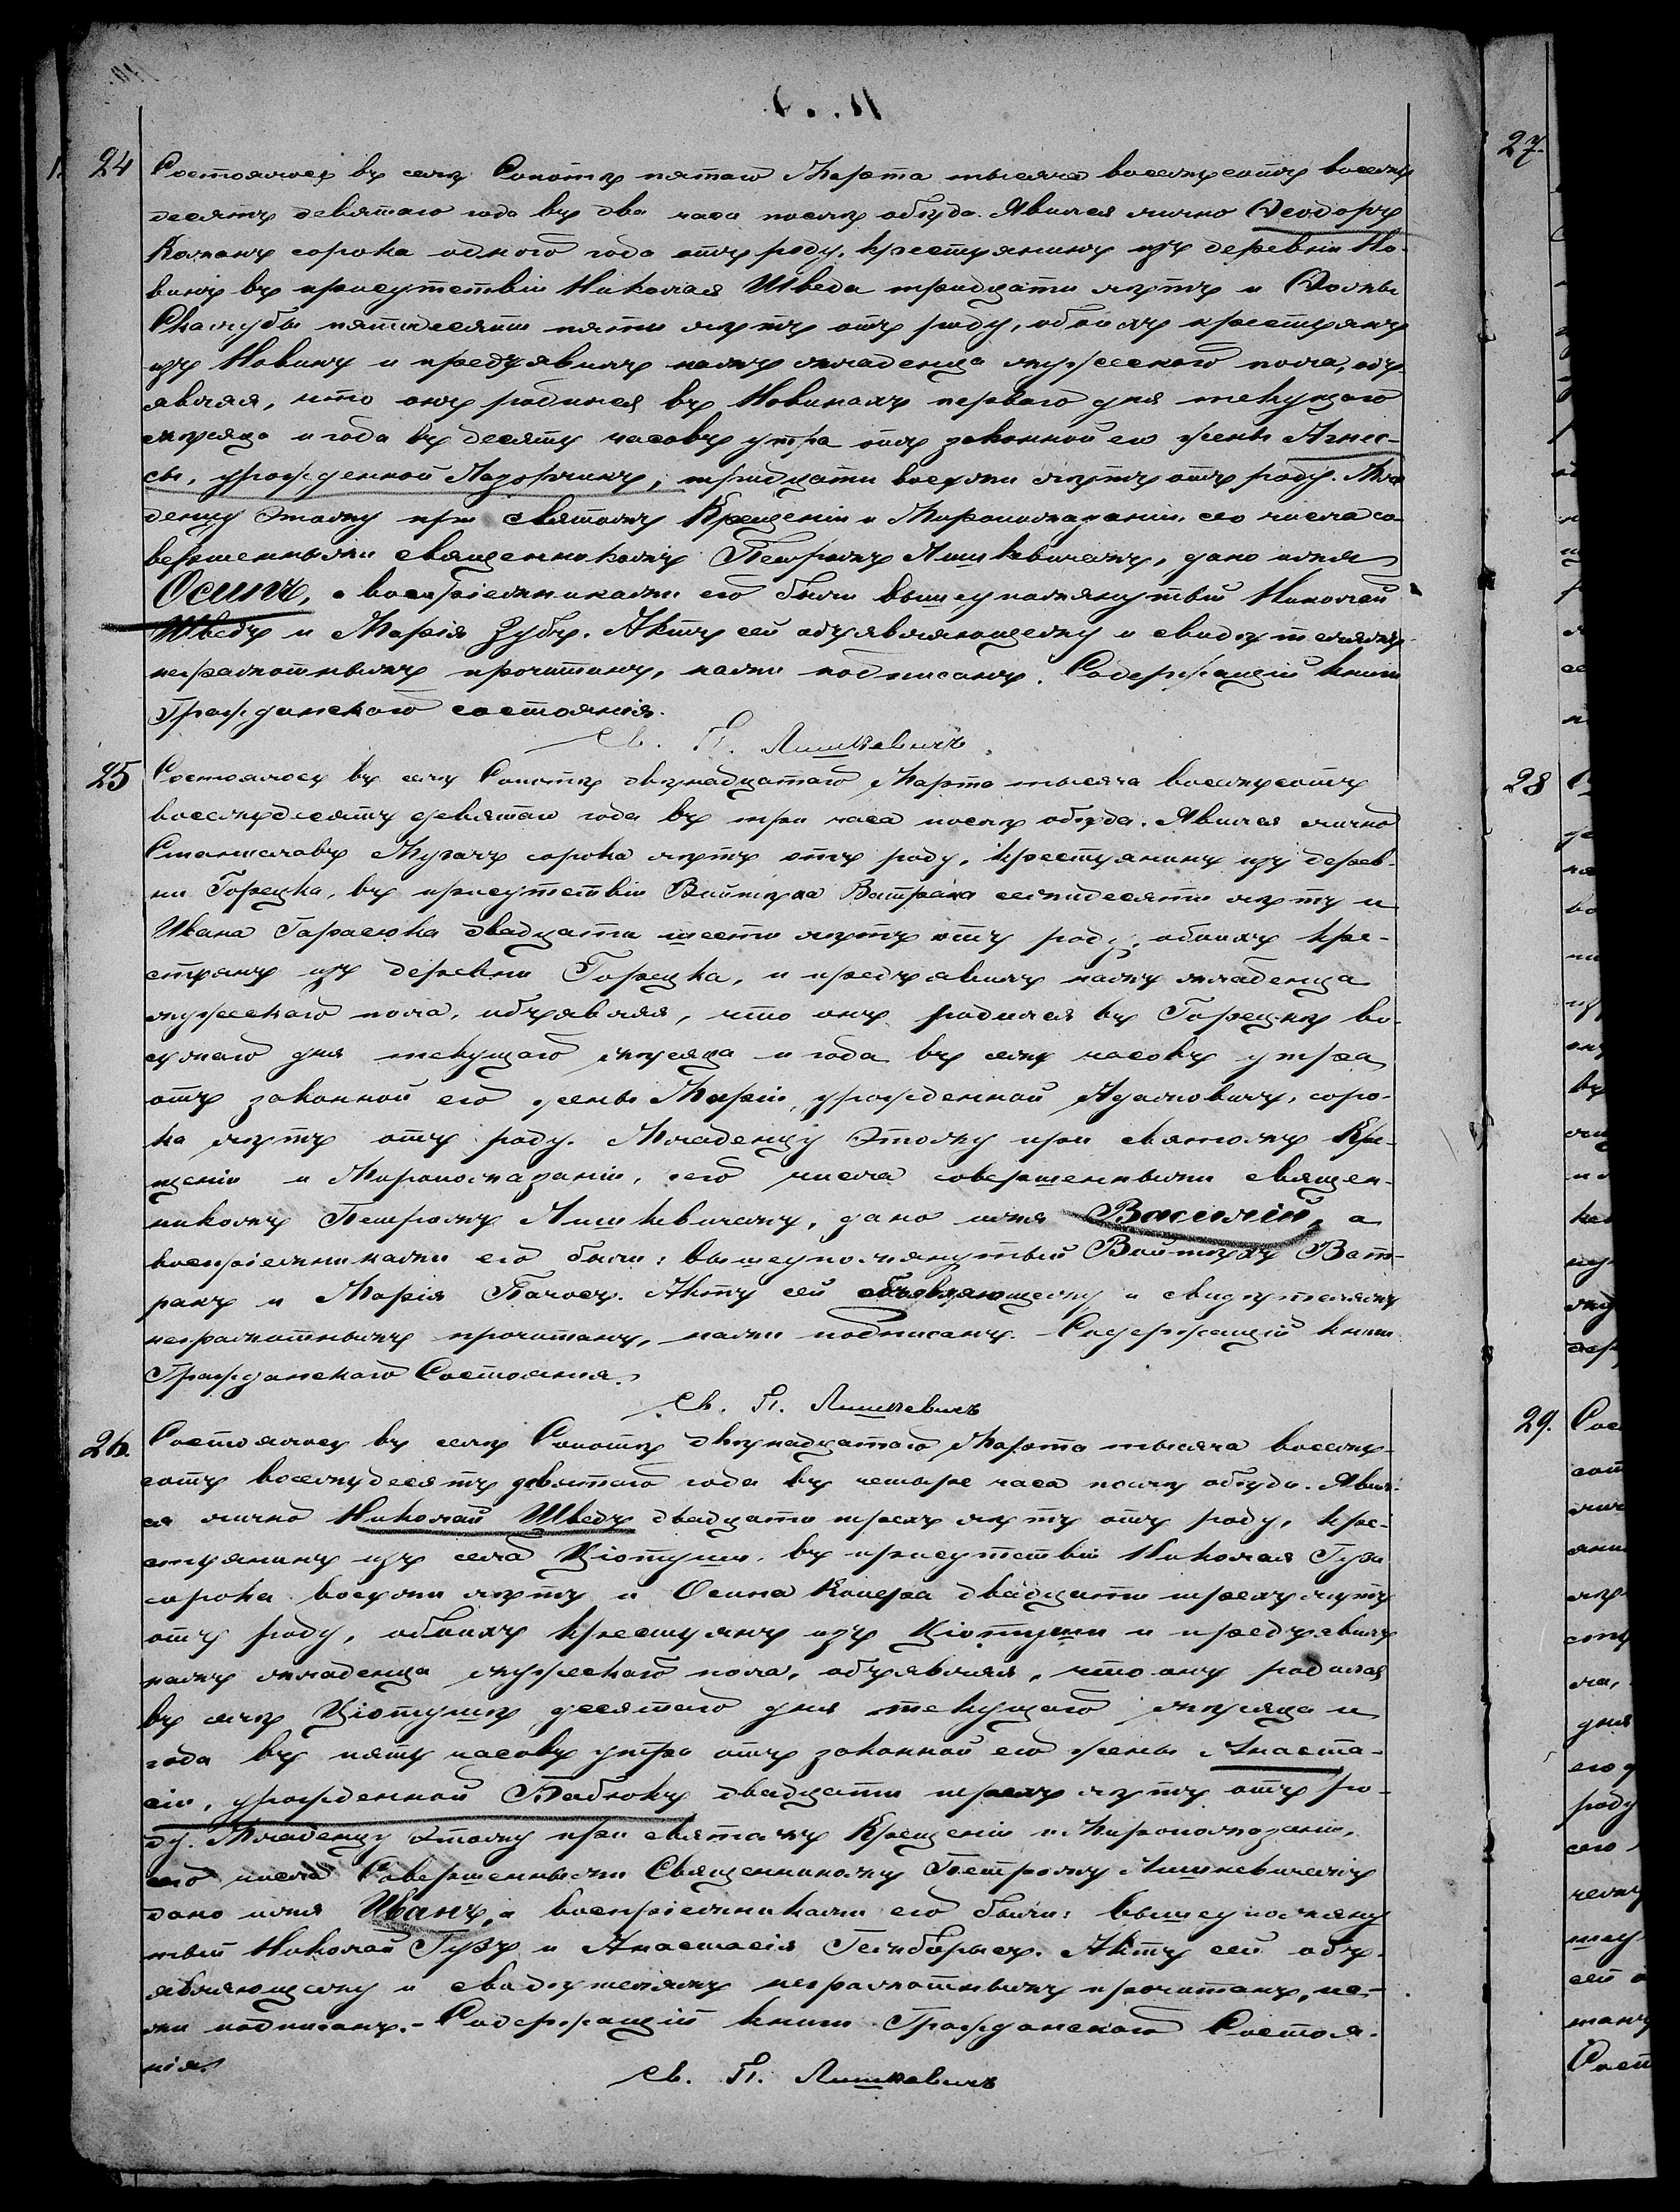 24
Состоялось въ селѣ Сопотѣ пятаго Марта тысяча восемьсотъ восемь
десятъ девятаго года въ два часа послѣ обѣда. Явился лично Ѳеодоръ
сорока одного года отъ роду, крестьянинъ изъ деревни Но-
винъ въ присутствіи Николая Шведа тридцати лѣтъ и Ѳомы
пятидесяти пяти лѣтъ отъ роду, обоихъ крестьянъ
изъ Новинъ и предъявилъ намъ младенца мужескаго пола, объ
являя, что онъ родился въ Новинахъ перваго дня текущаго
мѣсяца и года въ десять часовъ утра отъ законной его жены Агнес-
сы, урожденной тридцати восьми лѣтъ отъ роду. Мла
денцу этому при святомъ Крещеніи и Миропомазаніи, сего числа со-
вершенными священникомъ Петромъ Лишкевичемъ, дано имя
Осипъ, а воспріемниками его были вышеупомянутый Николай
Шведъ и Марія Зубъ. Актъ сей объявляющему и свидѣтелямъ
неграмотнымъ прочитанъ, нами подписанъ. Содержащій книги
Гражданскаго состоянія.
Св. П. Лишкевичъ
25
Состоялось въ селѣ Сопотѣ двѣнадцатаго Марта тысяча восемьсотъ
восемьдесятъ девятаго года въ три часа послѣ обѣда. Явился лично
Станиславъ сорока лѣтъ отъ роду, крестьянинъ изъ дерев-
ни Горецка, въ присутствіи Войтѣха Ватрака семидесяти лѣтъ и
Ивана Гарасюка двадцати шести лѣтъ отъ роду, обоихъ кре-
стьянъ изъ деревни Горецка, и предъявилъ намъ младенца
мужескаго пола, объявляя, что онъ родился въ Горецкѣ во-
сьмаго дня текущаго мѣсяца и года въ семь часовъ утра
отъ законной его жены Маріи, урожденной Адамовичъ, соро-
ка лѣтъ отъ роду. Младенцу этому при святомъ Кре-
щеніи и Миропомазаніи, сего числа совершенными священ-
никомъ Петромъ Лишкевичемъ, дано имя Василій, а
воспріемниками его были: вышеупомянутый Войтѣхъ Ват-
ракъ и Марія Актъ сей объявляющему и свидѣтелямъ
неграмотнымъ прочитанъ, нами подписанъ. Содержащій книги
Гражданскаго Состоянія.
Св. П. Лишкевичъ
26.
Состоялось въ селѣ Сопотѣ двѣнадцатаго Марта тысяча восемь-
сотъ восемьдесятъ девятаго года въ четыре часа послѣ обѣда. Явил-
ся лично Николай Шведъ двадцати трехъ лѣтъ отъ роду, кре-
стьянинъ изъ села Ціотуши, въ присутствіи Николая Гуза
сорока восьми лѣтъ и Осипа двадцати трехъ лѣтъ
отъ роду, обоихъ крестьянъ изъ Ціотуши и предъявилъ
намъ младенца мужескаго пола, объявляя, что онъ родился
въ селѣ Ціотушѣ десятаго дня текущаго мѣсяца и
года въ пять часовъ утра отъ законной его жены Анаста-
сіи, урожденной Бабюкъ двадцати трехъ лѣтъ отъ ро-
ду. Младенцу этому при святомъ Крещеніи и Миропомазаніи,
сего числа Совершенными Священникомъ Петромъ Лишкевичемъ
дано имя Иванъ, а воспріемниками его были: вышеупомяну
тый Николай Гузъ и Анастасія Актъ сей объ-
являющему и свидѣтелямъ неграмотнымъ прочитанъ, на-
ми подписанъ.- Содержащій книги Гражданскаго Состоя-
нія.
Св. П. Лишкевичъ
27.
28
29.